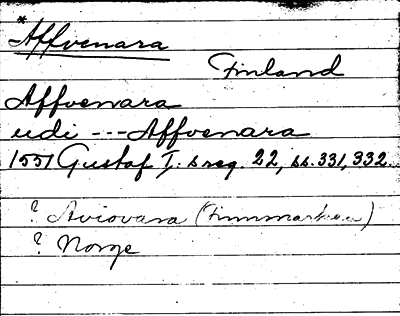 *Affvenara
Finland
Affvenara
udi --- Affvenara
1551 Gustaf I:s reg. 22, ss. 331, 332.
? Aviovara (Finnmarken)
? Norge